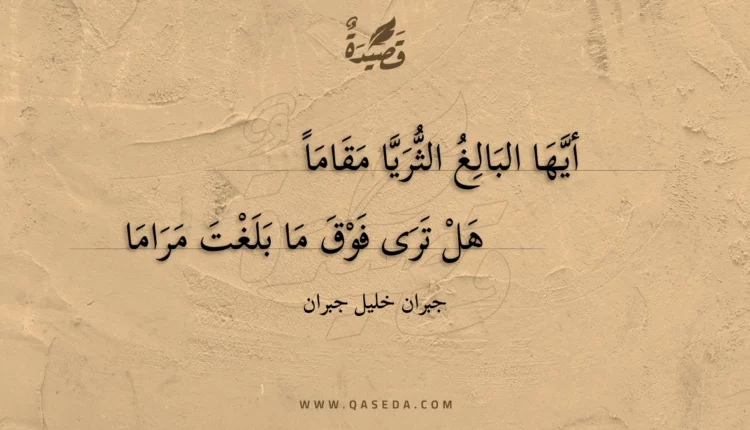 قَصِيْدَةٌ
أيَّهَا البَالِغُ الثُّرَيَّا مَقَامَاً
هَلْ تَرَى فَوْقَ مَا بَلَغْتَ مَرَامَا
جبران خليل جبران
WWW.QASEDA.COM